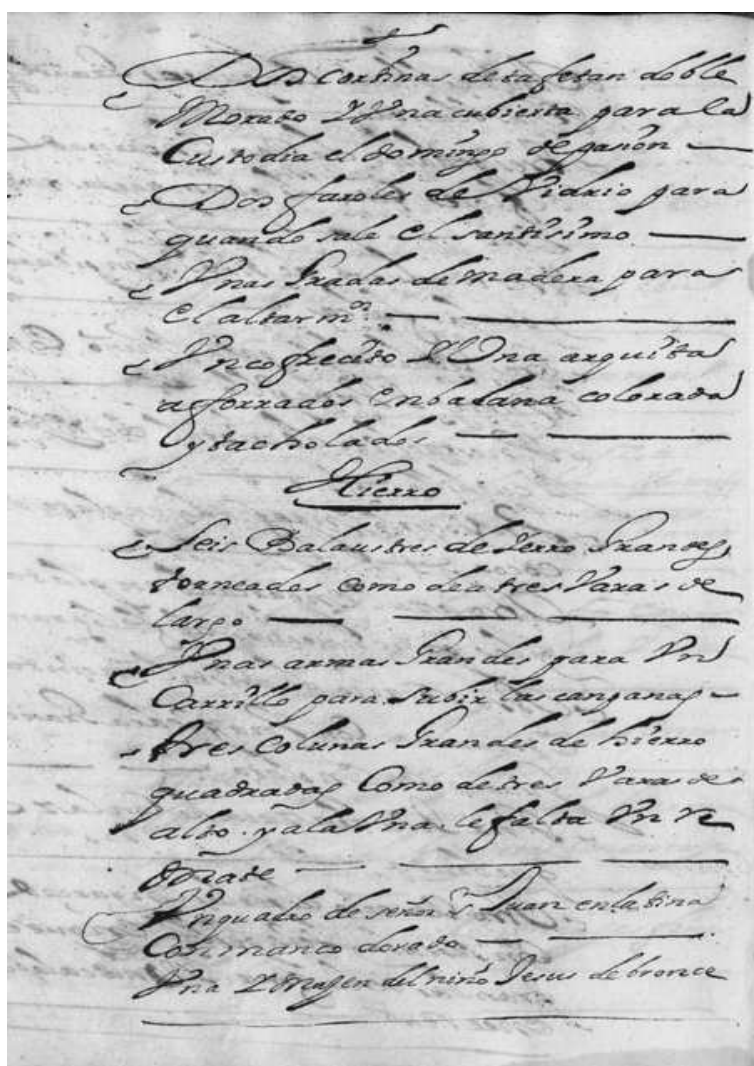 Dos cortinas de tafetan doble
Morado Y Vna cubierta para la
Custodia el domingo de pasion
Dos faroles de Vidrio para
quando sale el santisimo
Vnas Gradas de madera para
el altar mor
Vn cofrecito Y Vna arquita
aforrados en badana colorada
y tacholados
Hierro
Seis Balaustres de Yerro Grandes
torneados como de a tres Varas de
largo
Vnas armas Grandes para Vn
Carrillo para subir las canpanas
tres colunas Grandes de hierro
quadradas Como de tres Varas de
alto. y a la Vna le falta Vn Re
mate
Vn quadro de señor S Juan en la tina
Con marco dorado
Vna Ymagen del niño Jesus de bronce